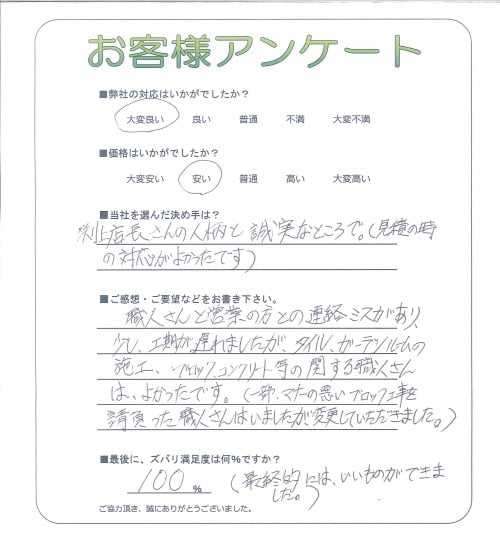 お客様アンケート
■弊社の対応はいかがでしたか？
大変良い 良い 普通 不満 大変不満
■価格はいかがでしたか？
大変安い 安い 普通 高い 大変高い
■当社を選んだ決め手は？
渕上店長さんの人柄と誠実なところで。(見積の時
の対応がよかったです)
■ご感想・ご要望などをお書き下さい。
職人さんと営業の方との連絡ミスがあり、
少し、工期が遅れましたが、タイル、ガーデンルームの
施工、ブロックコンクリート等の関する職人さん
は、よかったです。(一部、マナーの悪いブロック工事を
請負った職人さんはいましたが変更していただきました。)
■最後に、ズバリ満足度は何%ですか？
100 % (最終的には、いいものができま
した。)
ご協力頂き、誠にありがとうございました。